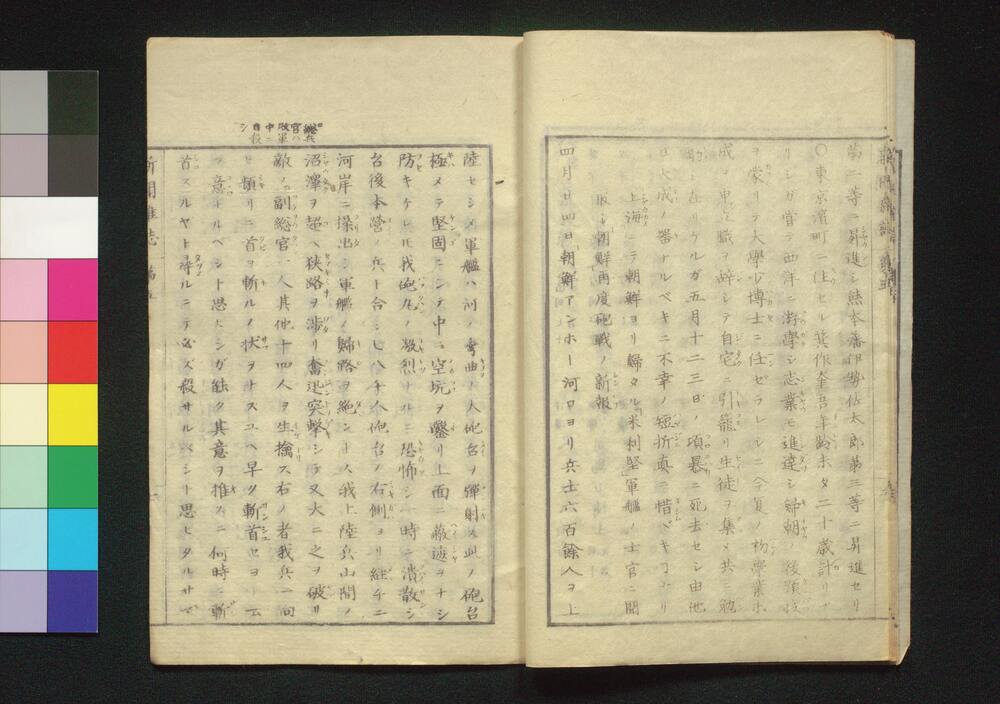 第二等ニ昇進シ熊本藩伊勢佐太郎第三等ニ昇進セリ
〇東京濱町ニ住セル箕作奎吾年齢未タ二十歳計リナ
リシガ官テ西洋ニ游學シ志業モ進達シ歸朝ノ後
ヲ蒙リテ大學少博士ニ任セラレシニ今夏ノ初學業未
成ヲ申シ職ヲ辞シテ自宅ニ引籠リ生徒ヲ集メ共ニ勉
勵シ在リケルガ五月十二三日ノ項暴ニ死去セシ由他
日大成ノ器ナルベキニ不幸ノ短折真ニ惜ベキヿナリ
上海ニテ朝鮮ヨリ歸タル「米利堅」軍艦ノ士官ニ聞
シ朝鮮再度砲戰ノ新報
四月廿四日「朝鮮アンホー」河口ヨリ兵士六百餘人ヲ上
陸セシメ軍艦ハ河ノ弯曲ノ人砲台ヲ彈射ス此ノ砲台
極メテ堅固ニシテ中ニ空坑ヲ鑿リ上面ニ蔽遮ヲナシ
防キケレ𪜈我砲丸ノ凝烈ナルニ恐怖シ一時ニ潰散シ
台後本營ノ兵ト合シ七八千人砲台ノ右側ヨリ経チニ
河岸ニ操出シ軍艦ノ歸路ヲ絶ントス我上陸兵山間ノ
沼澤ヲ超ヘ狭路ヲ渉リ奮迅突撃シテ又大ニ之ヲ破リ
敵ノ副総官一人其他十四人ヲ生擒ス右ノ者我兵ニ向
ヒ頻リニ首ヲ斬ルノ状ヲナスユヘ早ク斬首セヨト云
フ意ナルベシト思ヒシガ能ク其意ヲ推スニ何時ニ斬
首スルヤト尋ルニテ必ズ殺サルベシト思ヒタルサマ
総兵
官ハ
敗軍
中ニ
自殺
シ
新聞雜誌